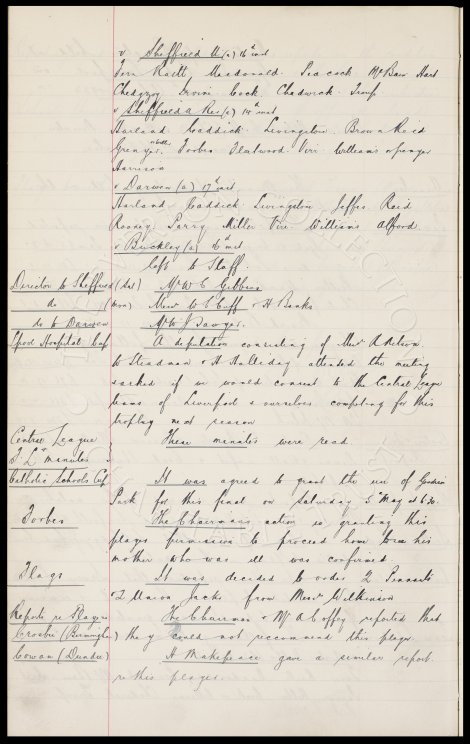 v Sheffield U (a) 16th inst
Kitchen Macdonald. Peacock McBain Hart
Chedgzoy Irvine Cock Chadwick Troup
v Sheffield a Res (a) 14th inst
Harland Caddick. Livingston. Brown Reid
Forbes Fleetwood Virr. Williams Spencer
Harrison
v Darwen (a) 17th inst
Harland Caddick Livingston Jeffs Reid
Rooney Parry Miller Virr Williams Alford
v Buckley (a) 16th inst
left to Staff.
Director to Sheffield (Sat) Mr W C Gibbins
do (mon) Messrs W C Cuff & H Banks
do to Darwen Mr W J Sawyer.
Lpool Hospital Cup A deputation consisting of Messrs R Nelson
to Steadman & H Halliday attended the meeting
& asked if we would consent to the Central League
teams of Liverpool & ourselves competing for this
trophy next season
Central League
F. L. minutes These minutes were read.
Catholic Schools Cup It was agreed to grant the use of Goodison
Park for this final on Saturday 5th May at 6.30.
Forbes The Chairman's action in granting this
player permission to proceed home to see his
mother who was ill was confirmed.
Flags It was decided to order 2 Pennants
& 2 Union Jacks from Messrs Wilkinson
Reports re Players The Chairman & Mr A Coffey reported that
Crosbie (Birmingham) they could not recommend this player.
Cowan (Dundee) H Makepeace gave a similar report
re this player.